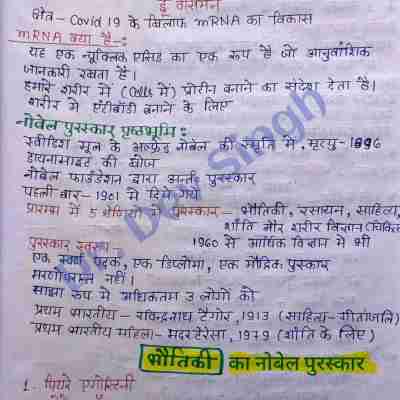 ड्रू वीसमैन
क्षेत्र- Covid 19 के खिलाफ mRNA का विकास
mRNA क्या है-:
यह एक न्यूक्लिक एसिड का एक रूप है जो आनुवांशिक
जानकारी रखता है।
हमारे शरीर में (Cells में) प्रोटीन बनाने का संदेश देता है।
शरीर में एंटीबॉडी बनाने के लिए
नोबेल पुरस्कार पृष्ठभूमि:
स्वीडिश मूल के अल्फ्रेड नोबेल की स्मृति में, मृत्यु- 1896
डायनामाइट की खोज
नोबेल फाउंडेशन द्वारा अन्त० पुरस्कार
पहली बार- 1901 में दिये गये
प्रारम्भ में 5 श्रेणियों में पुरस्कार- भौतिकी, रसायन, साहित्य,
शाँति और शरीर विज्ञान (चिकि
पुरस्कार स्वरूप- 1960 से आर्थिक विज्ञान में भी
एक स्वर्ण पदक, एक डिप्लोमा, एक मौद्रिक पुस्कार
मरणोपरान्त नहीं।
साझा रूप में अधिकतम 3 लोगों को
प्रथम भारतीय- रविन्द्रनाथ टैगोर, 1913 (साहित्य- गीतांजलि)
प्रथम भारतीय महिला- मदरटेरेसा, 1979 (शाँति के लिए)
भौतिकी का नोबेल पुरस्कार
1. पियरे एगोस्टिनी
Dev Singh